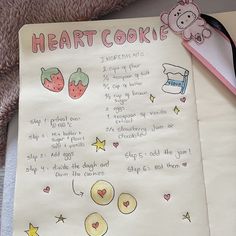 HEART COOKIE
Ingredients
2 cups of flour
1/2 teaspoon of salt
cup of butter
cup of brown sugar
eggs
teaspoon of vanilla extract
strawberry jam or chocolate
Step 1: preheat oven
Step 2: mix butter + sugar + flour
Step 3: Add eggs
Step 4: divide the dough and form the cookies
Step 5: add the jam!
Step 6: eat them